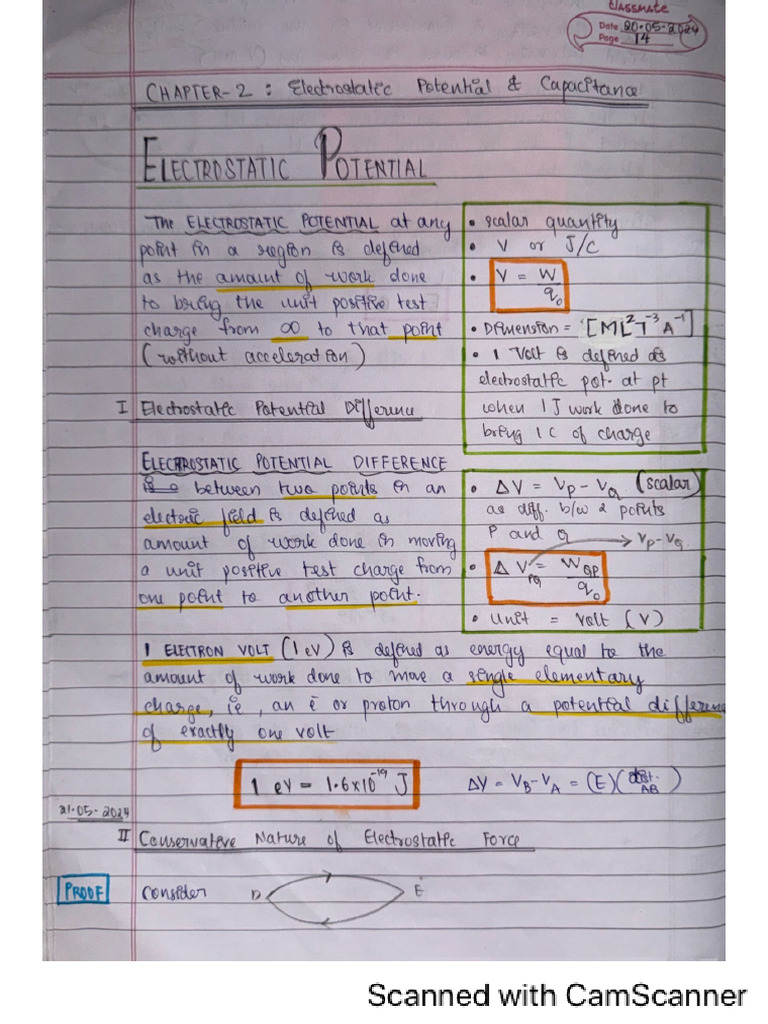 classmate
Date 20-05-2024
Page 14
CHAPTER-2 : Electrostatic Potential & Capacitance
ELECTROSTATIC POTENTIAL
The ELECTROSTATIC POTENTIAL at any
point in a region is defined
as the amount of work done
to bring the unit positive test
charge from ∞ to that point
(without acceleration)
• scalar quantity
• V or J/C
• V = W/q₀
• Dimension = [ML²T⁻³A⁻¹]
• 1 Volt is defined as
electrostatic pot. at pt
when 1 J work done to
bring 1 C of charge
I Electrostatic Potential Difference
ELECTROSTATIC POTENTIAL DIFFERENCE
is between two points in an
electric field is defined as
amount of work done in moving
a unit positive test charge from
one point to another point.
• ΔV = Vp - VQ (scalar)
as diff. b/w 2 points
P and Q
→ Vp - VQ
• ΔV_PQ = W_QP/q₀
• Unit = Volt (V)
1 ELECTRON VOLT (1 eV) is defined as energy equal to the
amount of work done to move a single elementary
charge, ie, an e⁻ or proton through a potential differenc
of exactly one volt
1 eV = 1.6x10⁻¹⁹ J
ΔV = VB - VA = (E)(dist. AB)
21-05-2024
II Conservative Nature of Electrostatic Force
PROOF
Consider
D
E
Scanned with CamScanner